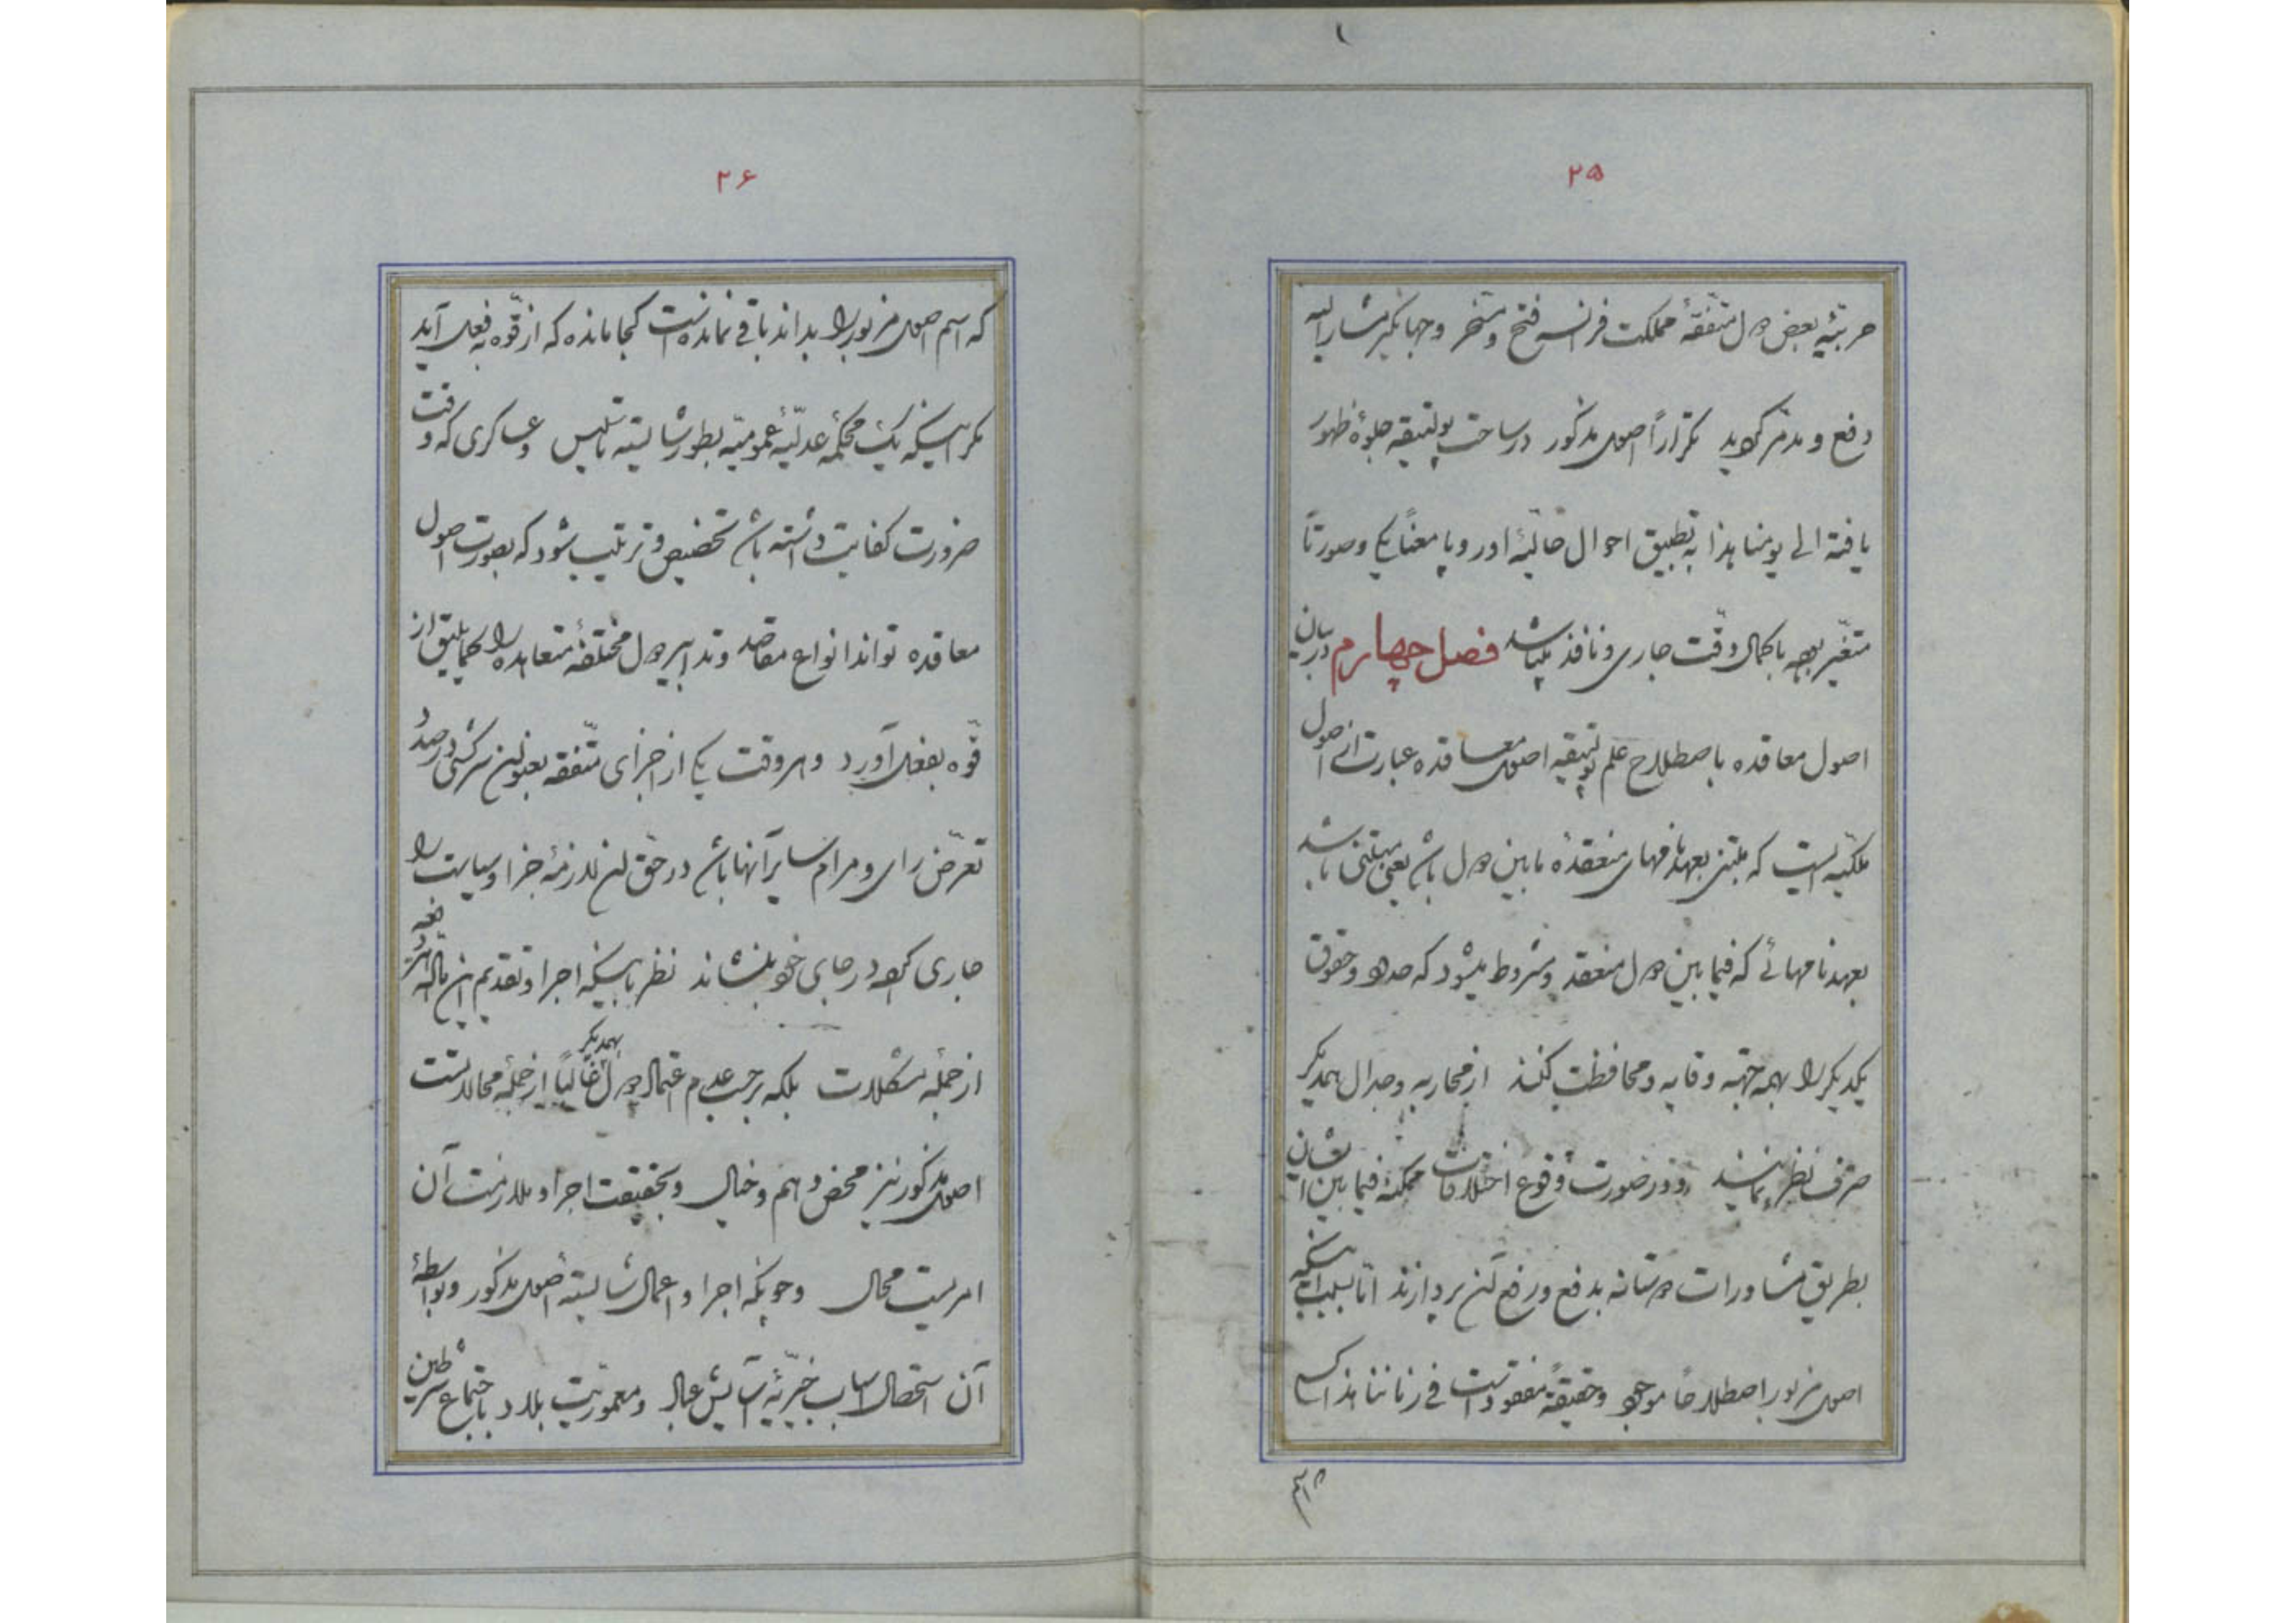 ۲۵
حربیّهٔ بعض دول متفقهٔ مملکت فرانسه فتح و مسخر و جهانگیر مشارالیه
دفع و مدمّر گردید تکراراً اصول مذکور در ساحت پولتیقه جلوهٔ ظهور
یافته الی یومنا هذا به تطبیق احوال حالیّهٔ اوروپا معناً یکی و صورتاً
متغیّر بوده باکمال دقّت جاری و نافذ میباشد فصل چهارم در بیان
اصول معاقده باصطلاح علم پولتیقه اصول معاقده عبارت از اصول
ملکیّه ایست که مبتنی بعهدنامهای منعقدهٔ مابین دول باشد یعنی مبتنی باشد
بعهدنامهائی که فیمابین دول منعقد و مشروط میشود که حدود و حقوق
یکدیگر را بهمه جهة وقایه و محافظت کنند از محاربه و جدال همدیگر
صرف نظر نمایند و در صورت وقوع اختلافات ممکنهٔ فیمابین ایشان
بطریق مشاورات دوستانه بدفع و رفع آن پردازند امّا بسبب اینکه
اصول مزبور اصطلاحاً موجود و حقیقةً مفقود است فی زماننا هذا کسی
۲۶
که اسم اصول مزبور را بداند باقی نمانده است کجا مانده که از قوّه بفعل آید
مگر اینکه یک محکمهٔ عدلیّهٔ عمومیّه بطور شایسته تأسیس و عساکری که وقت
ضرورت کفایت داشته باشد تخصیص و ترتیب شود که بصورت اصول
معاقده تواند انواع مقاصد و تدابیر دول مختلفهٔ متعاهده را کما یلیق از
قوّه بفعل آورد و هر وقت یکی از اجزای متّفقه بعنوان سرکشی در صدد
تعرّض رای و مرام سایر آنها باشد در حقّ آن لازمهٔ جزا و سیاست را
جاری کرده در جای خود بنشاند نظر باینکه اجرا و تقدیم این
از جملهٔ مشکلات بلکه بر حسب عدم اعتماد دول بهمدیگر غالباً از جملهٔ محالات است
اصول مذکور نیز محض وهم و خیال و بحقیقت اجرا و ملازمت آن
امریست محال و چونکه اجرا و اعمال شایستهٔ اصول مذکور و بواسطهٔ
آن استحصال اسباب خیریّهٔ آسایش عباد و معموریّت بلاد باجتماع شرطین